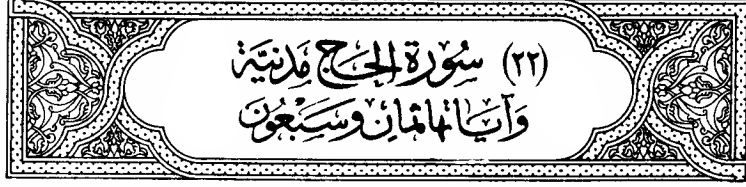 (٢٢) سُورَةُ الحَجِّ مَدَنِيَّة
وَآيَاتُهَا ثَمَانٍ وَسَبْعُونَ